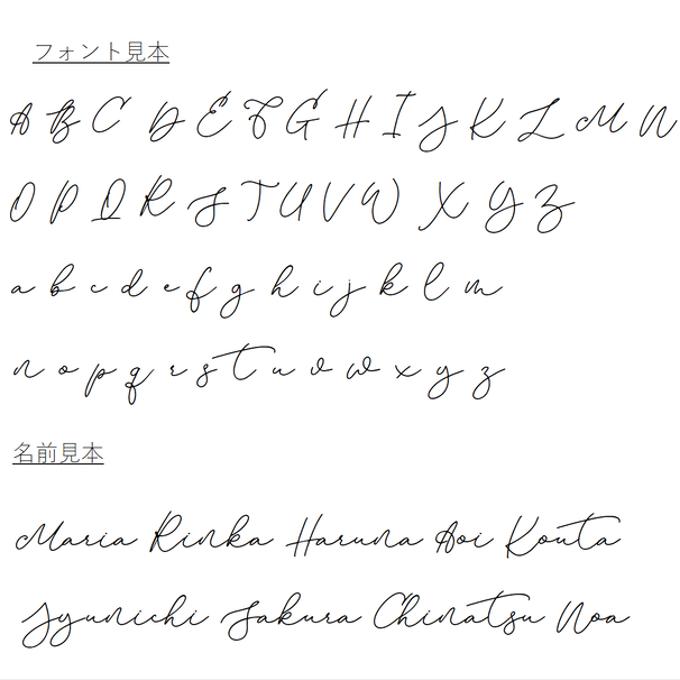 フォント見本
A B C D E F G H I J K L M N
O P Q R S T U V W X Y Z
a b c d e f g h i j k l m
n o p q r s t u v w x y z
名前見本
Maria Rinka Haruna Aoi Kouta
Jyunichi Sakura Chinatsu Noa